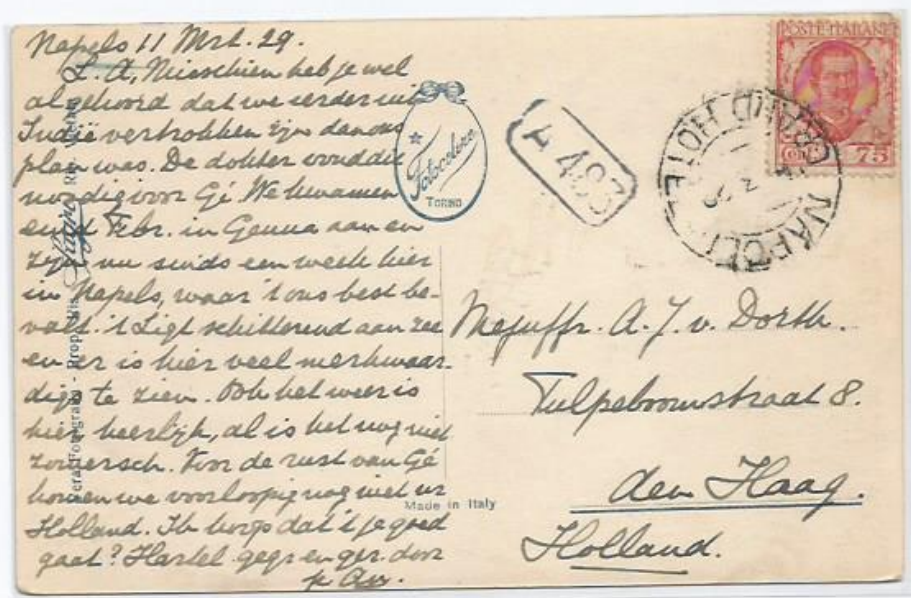 Napels 11 Mrt. 29.
L. A, Misschien heb je wel
al gehoord dat we eerder uit
Indië vertrokken zijn dan ons
plan was. De dokter vond dit
noodig voor Gé. We kwamen
eind Febr. in Genua aan en
zijn nu sinds een week hier
in Napels, waar 't ons best be-
valt. 't Ligt schitterend aan zee
en er is hier veel merkwaar-
digs te zien. Ook het weer is
hier heerlijk, al is het nog niet
zomersch. Voor de rust van Gé
komen we voorloopig nog niet in
Holland. Ik hoop dat 't je goed
gaat? Hartel. gegr en gez. door
POSTE ITALIANE
75
GRAND HOTEL
NAPOLI
A 483
Fotocelere
TORINO
Mejuffr. A. J. v. Dorth.
Tulpeboomstraat 8.
den Haag.
Holland.
Made in Italy
Vera Fotografia - Propr. Ris.